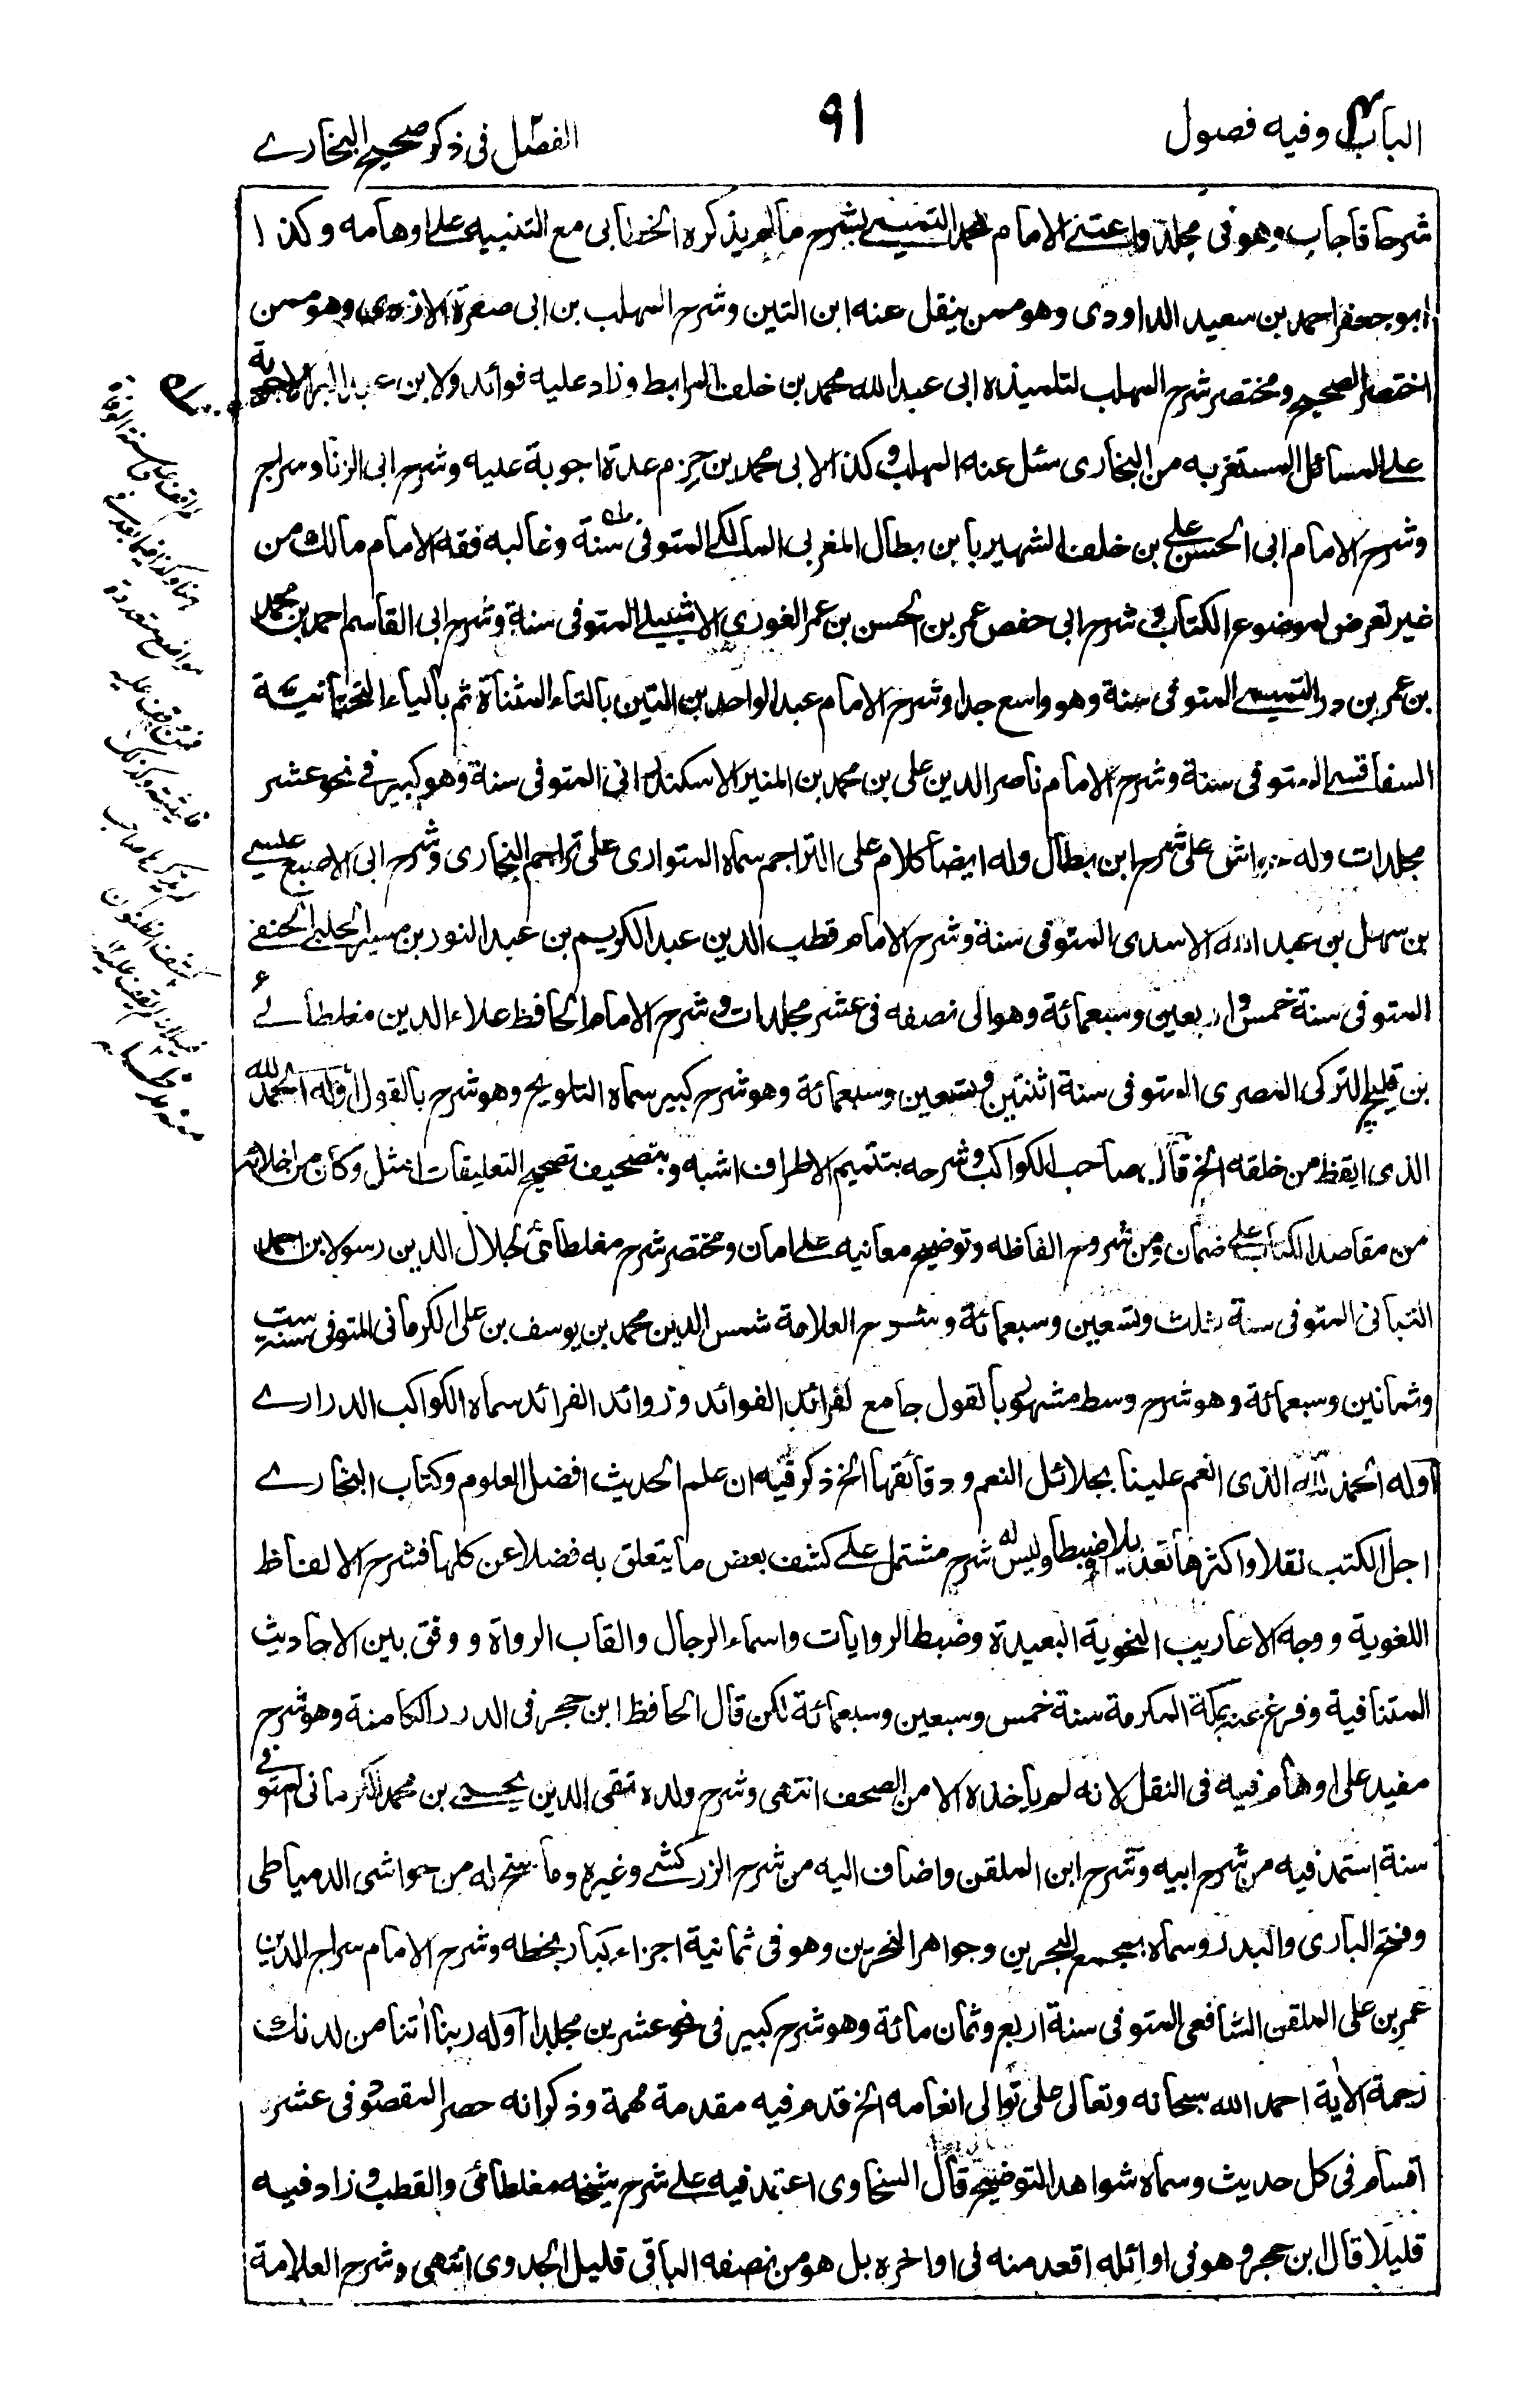 الباب وفيه فصول
٩١
الفصل فى ذكر صحيح البخارے
شرحا فاجاب وهو فى مجلد واعتنے الامام محمد التميمے بشرح مالم يذكره الخطابى مع التنبيه علے اوهامه وكذا
ابو جعفر احمد بن سعيد الداودى وهو ممن ينقل عنه ابن التين وشرح المهلب بن ابى صفرة الازدى وهو ممن
اختصر الصحيح ومختصر شرح المهلب لتلميذه ابى عبد الله محمد بن خلف المرابط وزاد عليه فوائد ولابن عبد البر الاجوبة
علے المسائل المستغربه من البخارى سئل عنه المهلب وكذا لابى محمد بن حزم عدة اجوبة عليه وشرح ابى الزناد سراج
وشرح الامام ابى الحسن علے بن خلف الشهير بابن بطال المغربى المالكے المتوفى سنة وغالبه فقه الامام مالك من
غير تعرض لموضوع الكتاب وشرح ابى حفص عمر بن الحسن بن عمر الفوزى الاشبيلے المتوفى سنة وشرح ابى القاسم احمد بن محمد
بن عمر بن ورد التميمے المتوفى سنة وهو واسع جدا وشرح الامام عبد الواحد بن التين بالتاء المثناة ثم بالياء التحتانية
السفاقسے المتوفى سنة وشرح الامام ناصر الدين على بن محمد بن المنير الاسكندرانى المتوفى سنة وهو كبير فے نحو عشر
مجلدات وله حواش على شرح ابن بطال وله ايضا كلام على التراجم سماه المتوارى على تراجم البخارى وشرح ابى الاصبع عيسے
بن سهل بن عبد الله الاسدى المتوفى سنة وشرح الامام قطب الدين عبد الكريم بن عبد النور بن ميسر الحلبے الحنفے
المتوفى سنة خمس واربعين وسبعمائة وهو الى نصفه فى عشر مجلدات وشرح الامام الحافظ علاء الدين مغلطائے
بن قليج التركى المصرى المتوفى سنة اثنتين وتسعين وسبعمائة وهو شرح كبير سماه التلويح وهو شرح بالقول اوله الحمد لله
الذى ايقظ من خلقه الخ قال صاحب الكواكب وشرحه بتتميم الاطراف اشبه وبتصحيف تصحيح التعليقات امثل وكان من اخلائه
من مقاصد الكتاب علے ضمان ومن شروح الفاظه وتوضيح معانيه علے امان ومختصر شرح مغلطائى لجلال الدين رسولا بن احمد
التبانى المتوفى سنة ثلث وتسعين وسبعمائة وشرح العلامة شمس الدين محمد بن يوسف بن على الكرمانى المتوفى سنة ست
وثمانين وسبعمائة وهو شرح وسط مشهور بالقول جامع لفرائد الفوائد وزوائد الفرائد سماه الكواكب الدرارے
اوله الحمد لله الذى انعم علينا بجلائل النعم ودقائقها الخ ذكر فيه ان علم الحديث افضل العلوم وكتاب البخارے
اجل الكتب نقلا واكثرها تعديلا وضبطا وليس له شرح مشتمل علے كشف بعض ما يتعلق به فضلا عن كلها فشرح الالفاظ
اللغوية ووجه الاعاريب النحوية البعيدة وضبط الروايات واسماء الرجال والقاب الرواة ووفق بين الاحاديث
المتنافية وفرغ عنه بمكة المكرمة سنة خمس وسبعين وسبعمائة لكن قال الحافظ ابن حجر فى الدرر الكامنة وهو شرح
مفيد على اوهام فيه فى النقل لانه لم ياخذه الا من الصحف انتهى وشرح ولده تقى الدين يحيے بن محمد الكرمانى المتوفے
سنة استمد فيه من شرح ابيه وشرح ابن الملقن واضاف اليه من شرح الزركشے وغيره وما سنح له من حواشى الدمياطى
وفتح البارى والبدر وسماه بمجمع البحرين وجواهر الحبرين وهو فى ثمانية اجزاء كبار بخطه وشرح الامام سراج الدين
عمر بن على الملقن الشافعى المتوفى سنة اربع وثمان مائة وهو شرح كبير فى نحو عشرين مجلدا اوله ربنا اتنا من لدنك
رحمة الاية احمد الله سبحانه وتعالى على توالى انعامه الخ قدم فيه مقدمة مهمة وذكر انه حصر المقصود فى عشر
اقسام فى كل حديث وسماه شواهد التوضيح قال السخاوى اعتمد فيه علے شرح شيخه مغلطائى والقطب وزاد فيه
قليلا قال ابن حجر وهو فى اوائله اقعد منه فى اواخره بل هو من نصفه الباقى قليل الجدوى انتهى وشرح العلامة